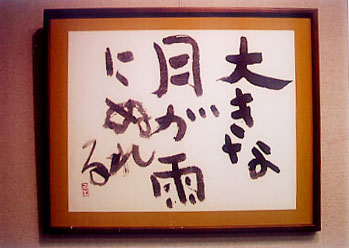 大きな
月が雨
にぬれる